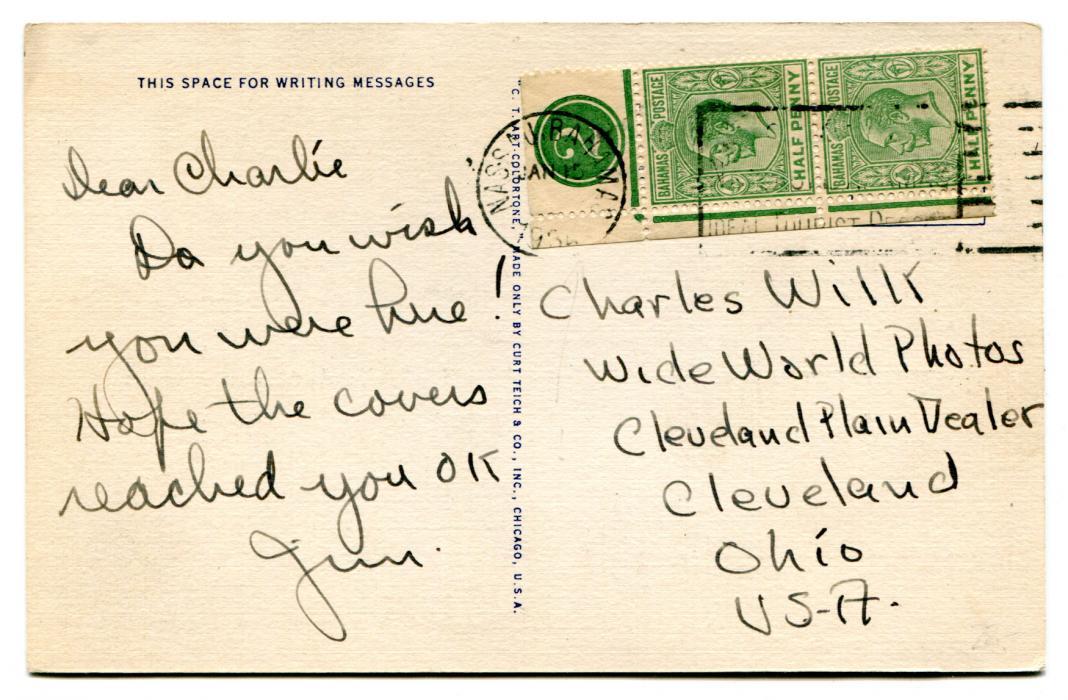 THIS SPACE FOR WRITING MESSAGES
Dear Charlie
Do you wish
you were here!
Hope the covers
reached you OK
Jim.
"C. T. ART-COLORTONE," MADE ONLY BY CURT TEICH & CO., INC., CHICAGO, U.S.A.
2
BAHAMAS POSTAGE
HALF PENNY
BAHAMAS POSTAGE
HALF PENNY
NASSAU BAHAMAS
JAN
IDEAL TOURIST
Charles Willk
Wide World Photos
Cleveland Plain Dealer
Cleveland
Ohio
US-A.